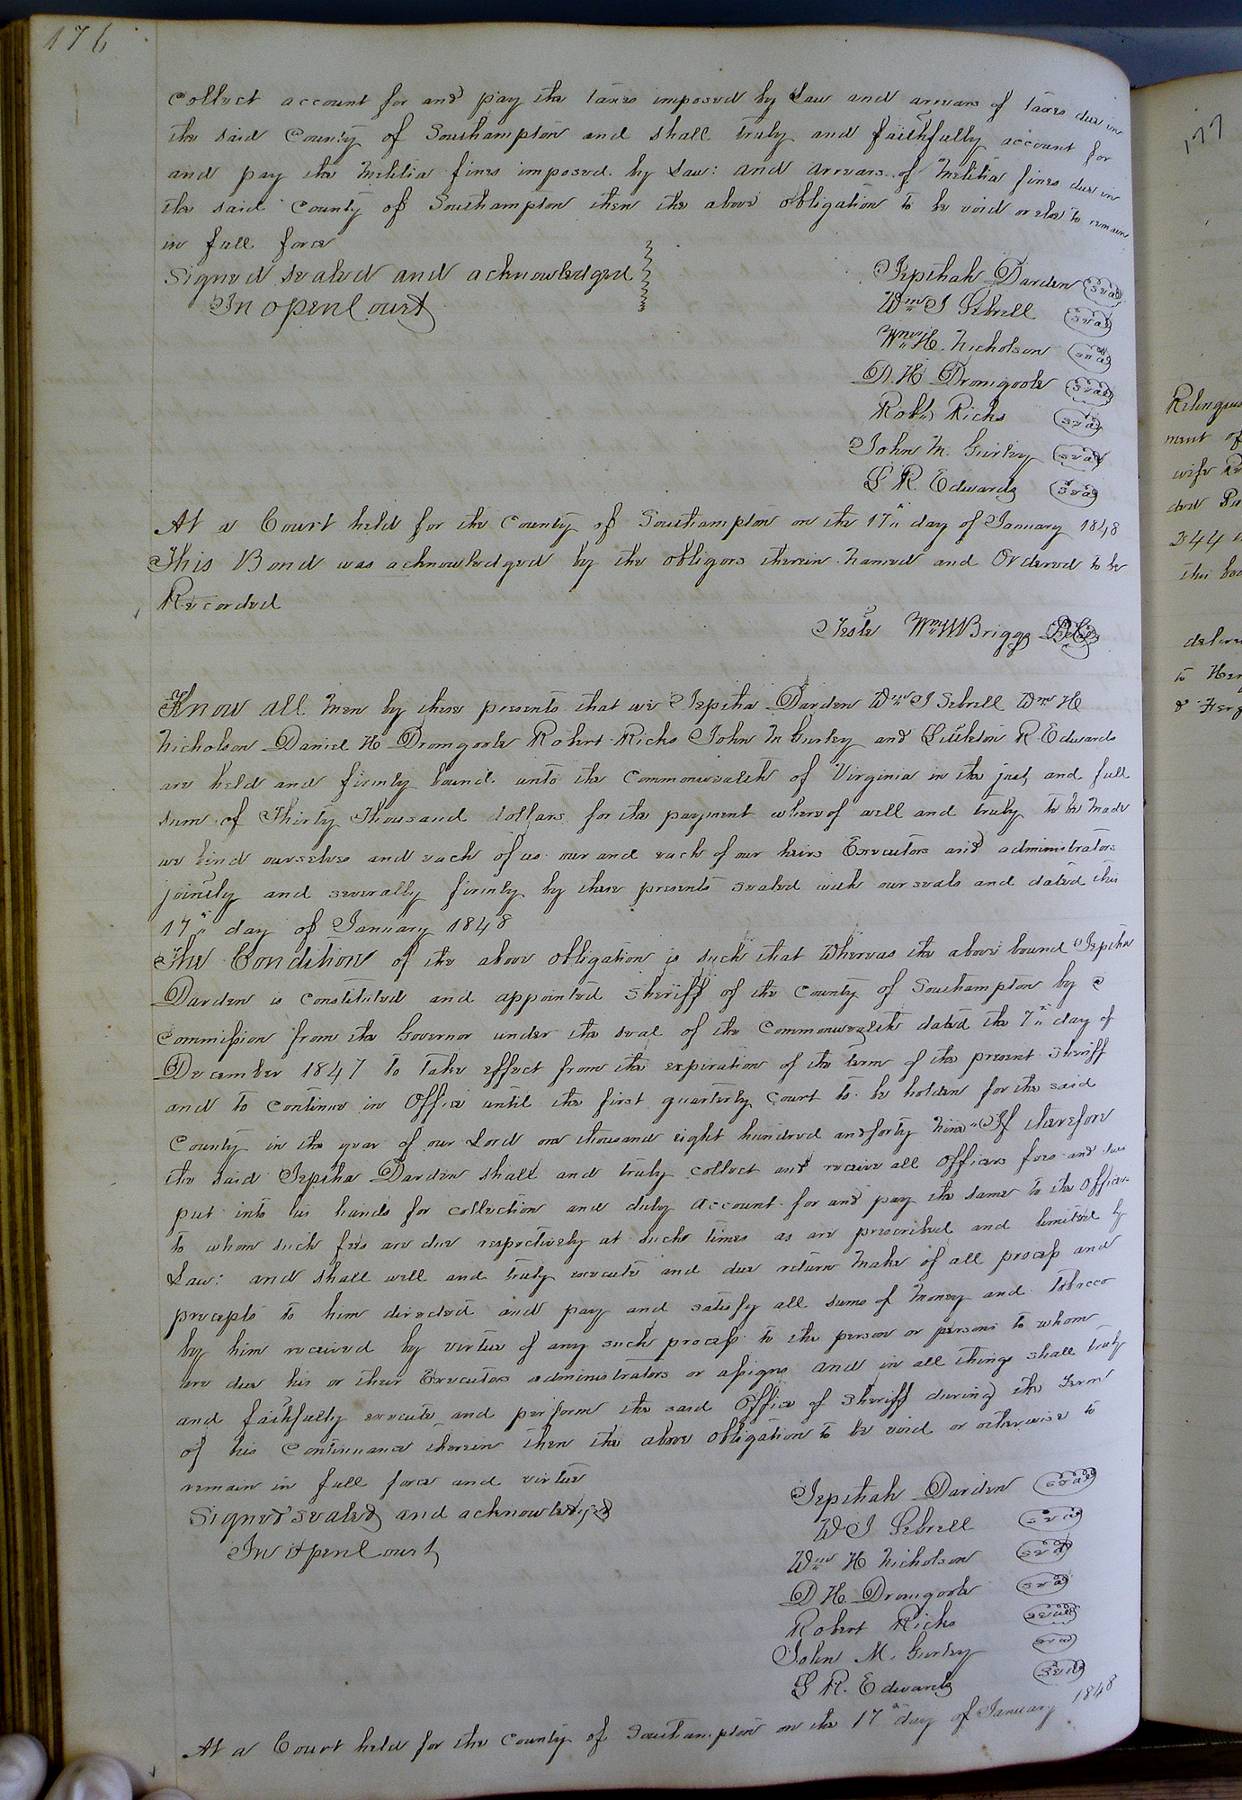 176
collect account for and pay the taxes imposed by Law and arrears of taxes due in
the said County of Southampton and shall truly and faithfully account for
and pay the Militia fines imposed by Law: and arrears of Militia fines due in
the said County of Southampton then the above obligation to be void or else to remain
in full force
Signed sealed and acknowledged
In open Court
Jepthah Darden seal
Wm J Sebrell seal
Wm H. Nicholson seal
D. H. Dromgoole seal
Robt Ricks seal
John M. Gurley seal
L R. Edwards seal
At a Court held for the County of Southampton on the 17th day of January 1848
This Bond was acknowledged by the obligors therein named and Ordered to be
Recorded
Teste Wm W Briggs D.C.
Know all Men by these presents that we Jeptha Darden Wm J Sebrell Wm H
Nicholson Daniel H Dromgoole Robert Ricks John M Gurley and Littleton R Edwards
are held and firmly bound unto the Commonwealth of Virginia in the just and full
sum of Thirty Thousand dollars for the payment whereof well and truly to be made
we bind ourselves and each of us our and each of our heirs Executors and administrators
jointly and severally firmly by these presents sealed with our seals and dated this
17th day of January 1848
The Condition of the above obligation is such that Whereas the above bound Jeptha
Darden is Constituted and appointed Sheriff of the County of Southampton by a
Commission from the Governor under the seal of the Commonwealth dated the 7th day of
December 1847 to take effect from the expiration of the term of the present Sheriff
and to continue in Office until the first quarterly Court to be holden for the said
County in the year of our Lord one thousand eight hundred and forty nine "If therefore
the said Jeptha Darden shall and truly collect and receive all Officers fees and dues
put into his hands for collection and duly account for and pay the same to the Officers
to whom such fees are due respectively at such times as are prescribed and limited by
Law: and shall well and truly execute and due return make of all process and
precepts to him directed and pay and satisfy all sums of money and tobacco
by him received by virtue of any such process to the person or persons to whom
are due his or their Executors administrators or assigns and in all things shall truly
and faithfully execute and perform the said Office of Sheriff during the term
of his Continuance therein then the above obligation to be void or otherwise to
remain in full force and virtue
Signed sealed and acknowledged
In open Court
Jepthah Darden seal
W J Sebrell seal
Wm H Nicholson seal
D H. Dromgoole seal
Robert Ricks seal
John M. Gurley seal
L R. Edwards seal
At a Court held for the County of Southampton on the 17th day of January 1848
177
ment of
wife
244
to